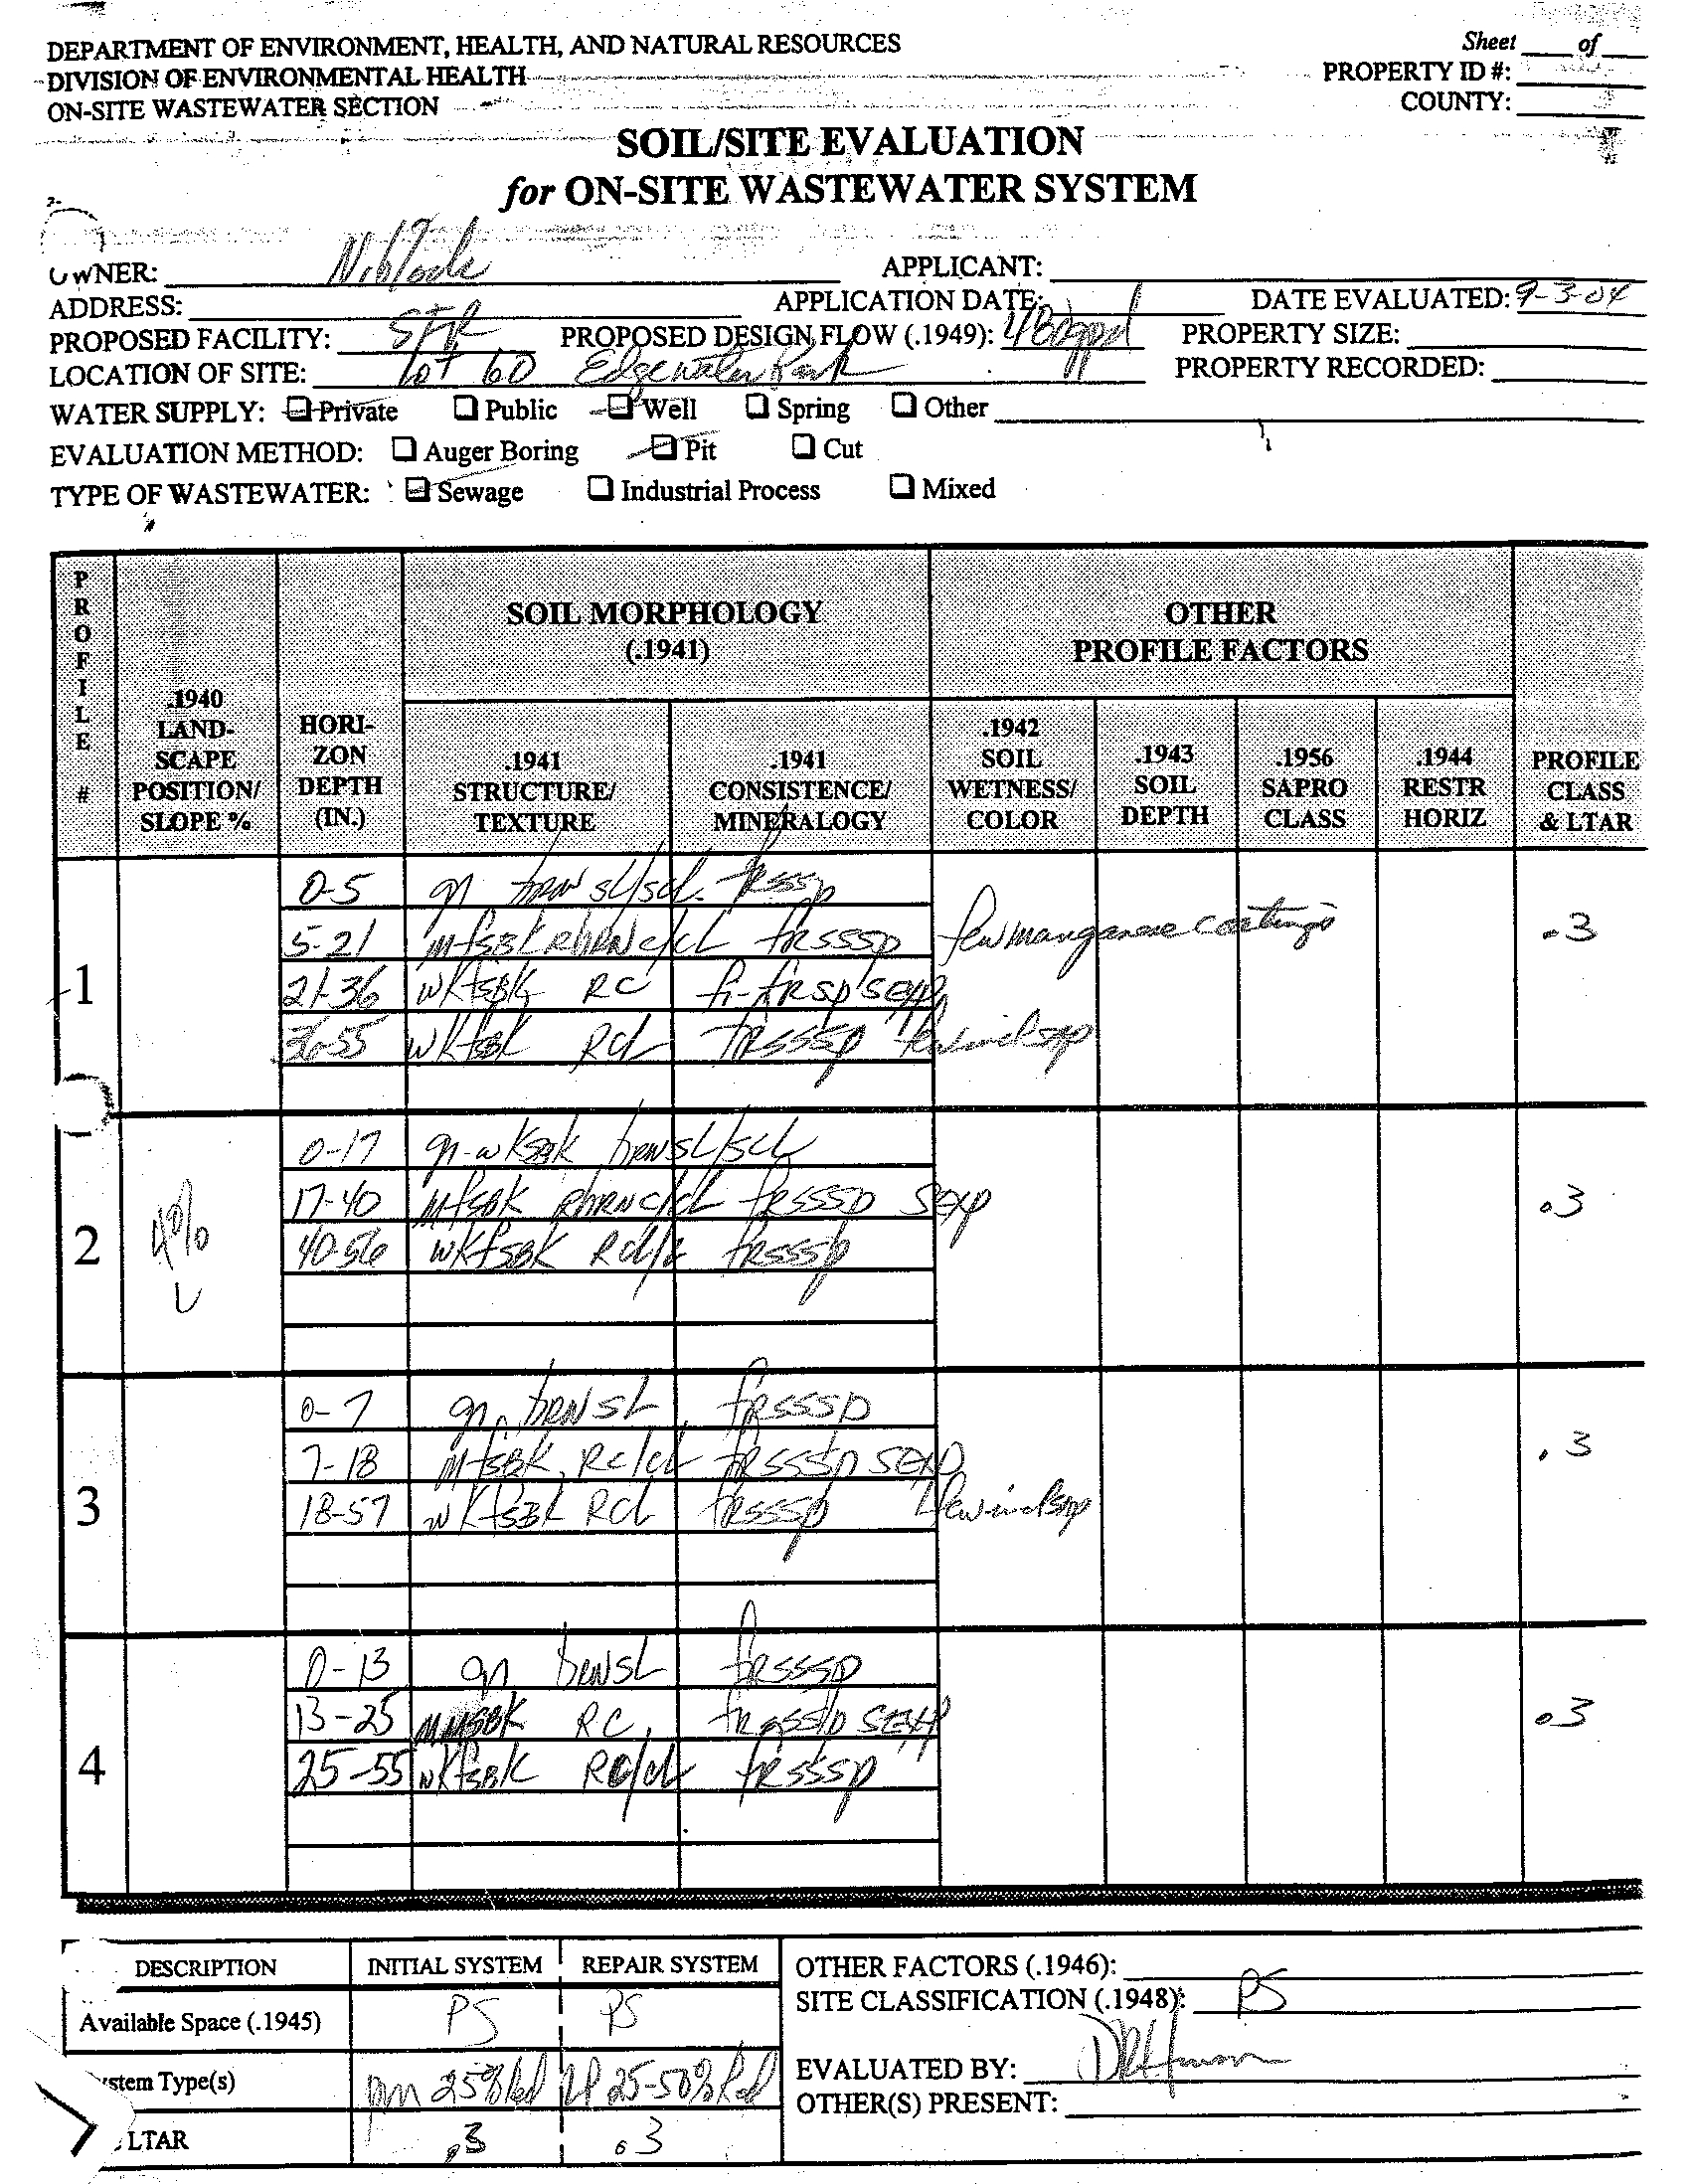 DEPARTMENT OF ENVIRONMENT, HEALTH, AND NATURAL RESOURCES
DIVISION OF ENVIRONMENTAL HEALTH
ON-SITE WASTEWATER SECTION
Sheet ___ of ___
PROPERTY ID #:
COUNTY:
SOIL/SITE EVALUATION
for ON-SITE WASTEWATER SYSTEM
OWNER: Niblock APPLICANT:
ADDRESS: APPLICATION DATE: DATE EVALUATED: 9-3-04
PROPOSED FACILITY: SFR PROPOSED DESIGN FLOW (.1949): 480gpd PROPERTY SIZE:
LOCATION OF SITE: Lot 60 Edgewater Park PROPERTY RECORDED:
WATER SUPPLY: Private Public Well Spring Other
EVALUATION METHOD: Auger Boring Pit Cut
TYPE OF WASTEWATER: Sewage Industrial Process Mixed
PROFILE #
.1940 LAND-SCAPE POSITION/ SLOPE %
HORI-ZON DEPTH (IN.)
SOIL MORPHOLOGY (.1941)
OTHER PROFILE FACTORS
.1941 STRUCTURE/ TEXTURE
.1941 CONSISTENCE/ MINERALOGY
.1942 SOIL WETNESS/ COLOR
.1943 SOIL DEPTH
.1956 SAPRO CLASS
.1944 RESTR HORIZ
PROFILE CLASS & LTAR
1
0-5 gr brn sl/scl frsssp
5-21 mfsbk rbrn c/cl frsssp few manganese coatings .3
21-36 wkfsbk RC fi-frsp sexp
36-55 wkfsbk Rcl frsssp few incl sap
2 4% L
0-17 gr-wksbk brn sl/scl
17-40 mfsbk rbrn c/cl frsssp sexp .3
40-56 wkfsbk Rcl/c frsssp
3
0-7 gr brn sL frsssp
7-18 mfsbk Rc/cl frsssp sexp .3
18-57 wkfsbk RCL frsssp few incl sap
4
0-13 gr brn sL frsssp
13-25 mmsbk RC frsssp sexp .3
25-55 wkfsbk RC/cl frsssp
DESCRIPTION INITIAL SYSTEM REPAIR SYSTEM
Available Space (.1945) PS PS
ystem Type(s) 25% Red 25-50% Red
LTAR .3 .3
OTHER FACTORS (.1946):
SITE CLASSIFICATION (.1948): PS
EVALUATED BY:
OTHER(S) PRESENT: